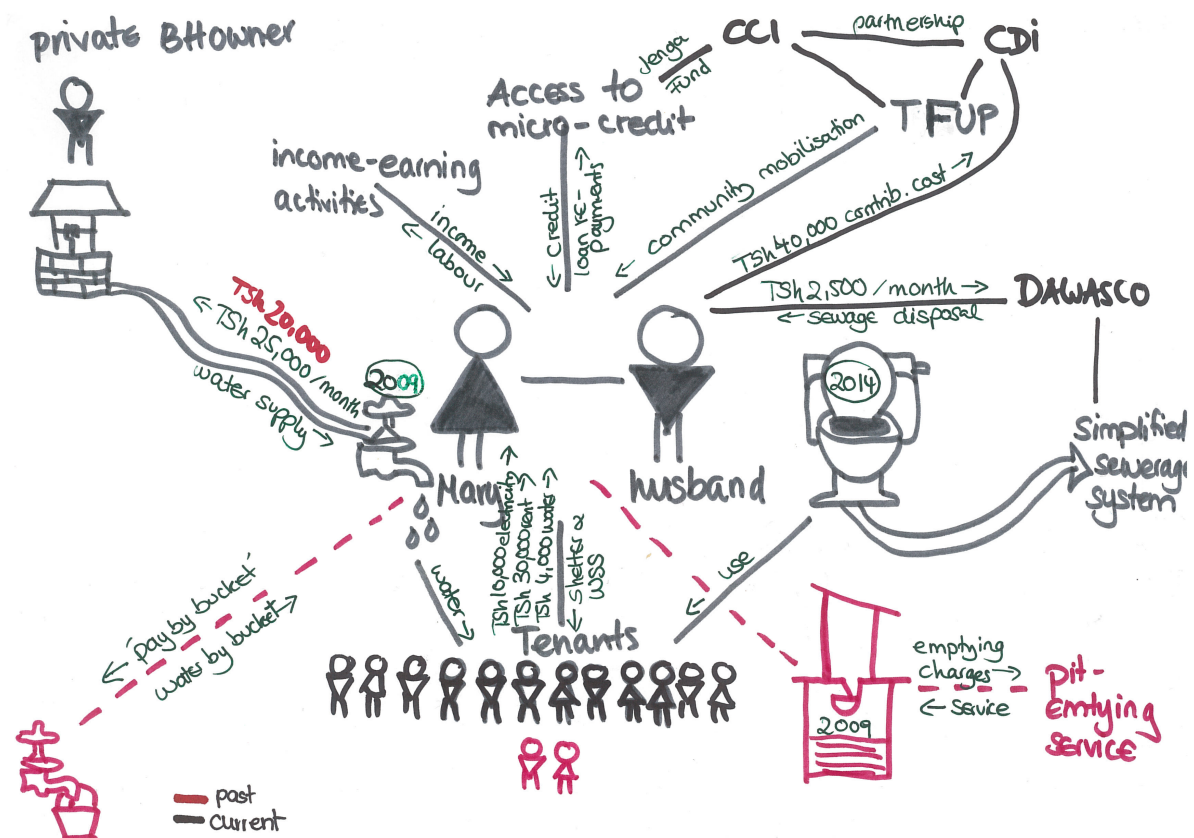 private BHowner
CCI
partnership
CDi
Jenga
Fund
Access to
micro-credit
TFUP
income-earning
activities
income →
← labour
← credit
loan re-
payments →
← community mobilisation
TSh 40,000 contrib. cost →
TSh 2,500 / month →
← sewage disposal
DAWASCO
TSh 20,000
← TSh 25,000 /month
water supply →
2009
2014
Simplified
sewerage
system
Mary
husband
TSh 10,000 electricity →
TSh 30,000 rent →
TSh 4,000 water →
← shelter &
WSS
water →
← use
Tenants
← 'pay by bucket'
water by bucket →
emptying
charges →
← service
pit-
emtying
service
2009
past
current